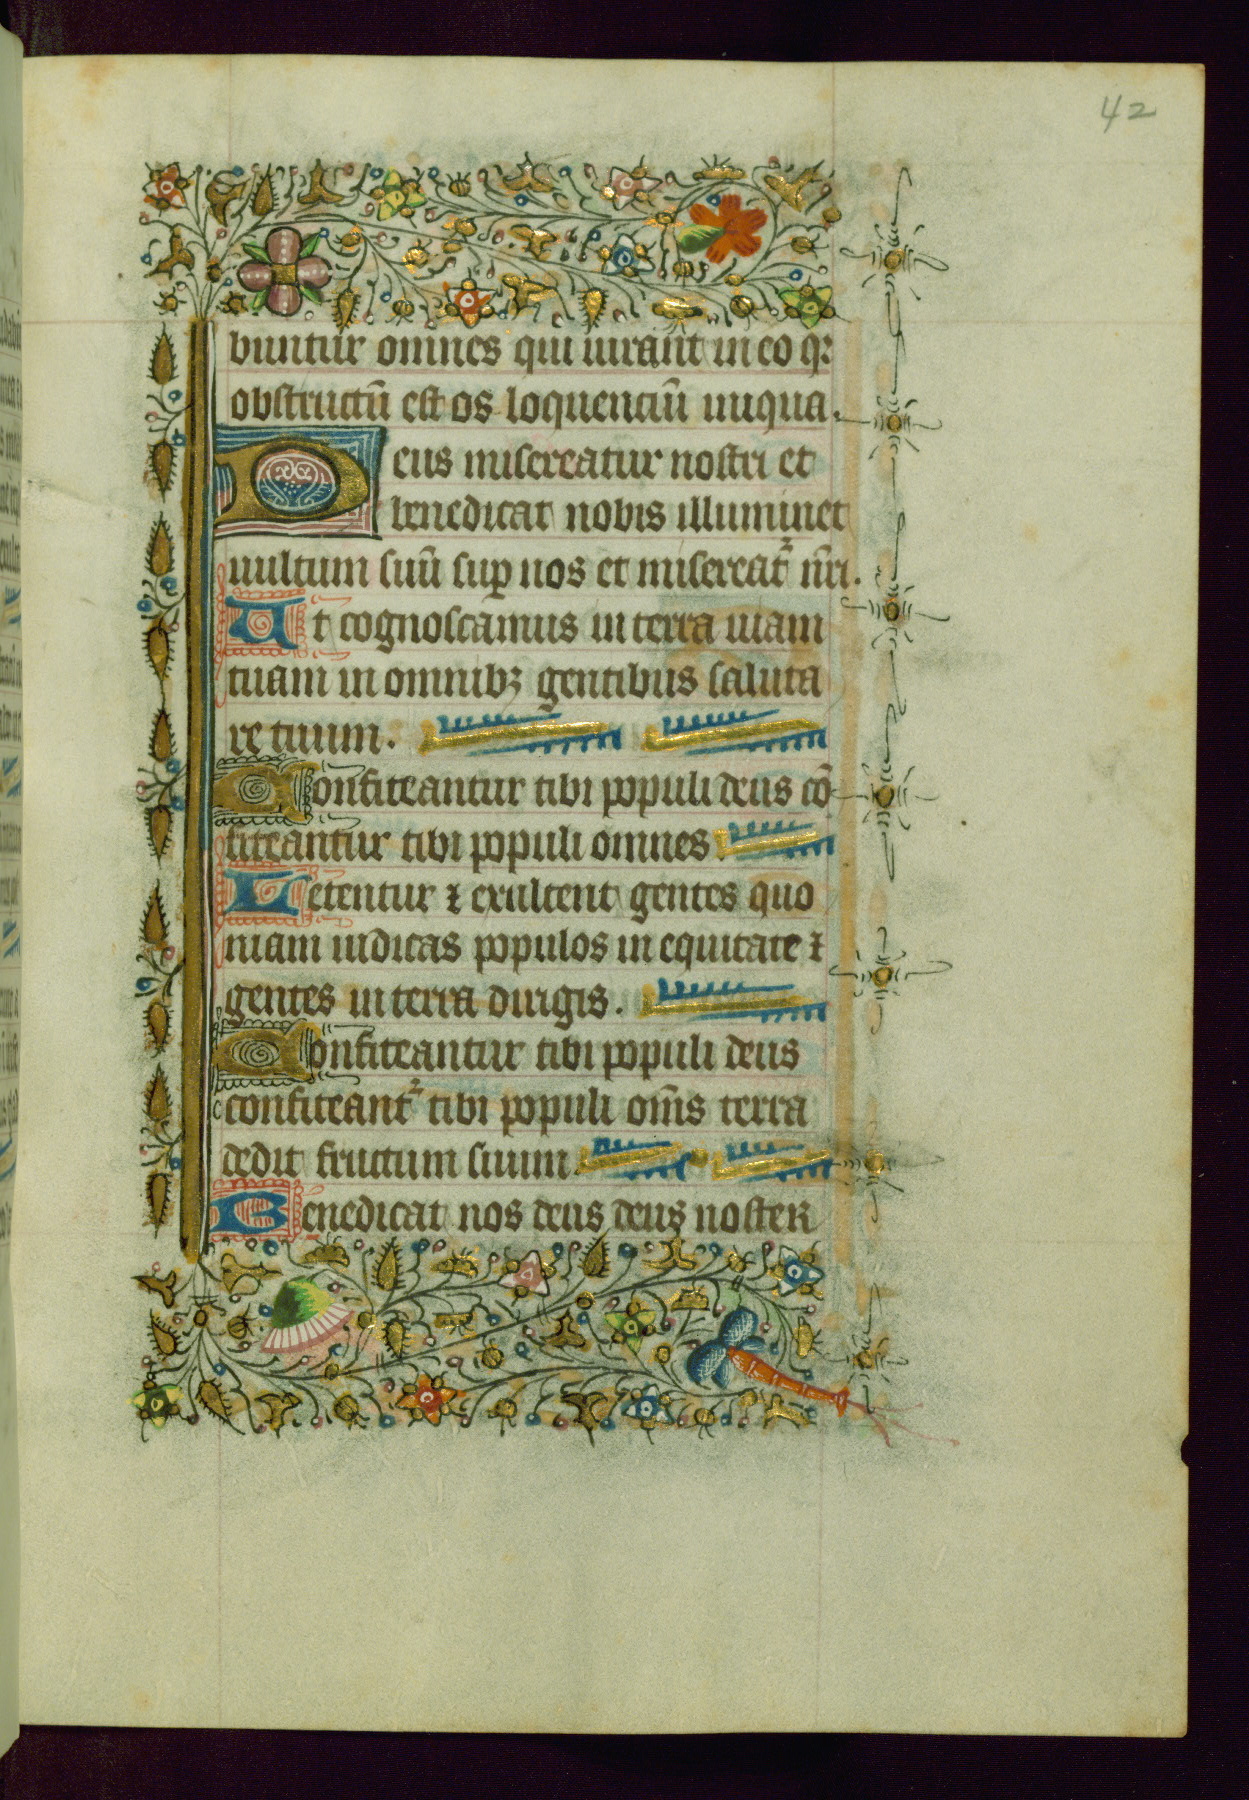 42
buntur omnes qui iurant in eo qꝛ
obstructū est os loquenciū iniqua.
Deus misereatur nostri et
benedicat nobis illuminet
uultum suū suꝑ nos et misereat᷑ nr̄i.
Ut cognoscamus in terra uiam
tuam in omnibꝫ gentibus saluta
re tuum.
Confiteantur tibi populi deus cō
fiteantur tibi populi omnes
Letentur ⁊ exultent gentes quo
niam iudicas populos in equitate ⁊
gentes in terra dirigis.
Confiteantur tibi populi deus
confiteant᷑ tibi populi om̄s terra
dedit fructum suum.
Benedicat nos deus deus noster